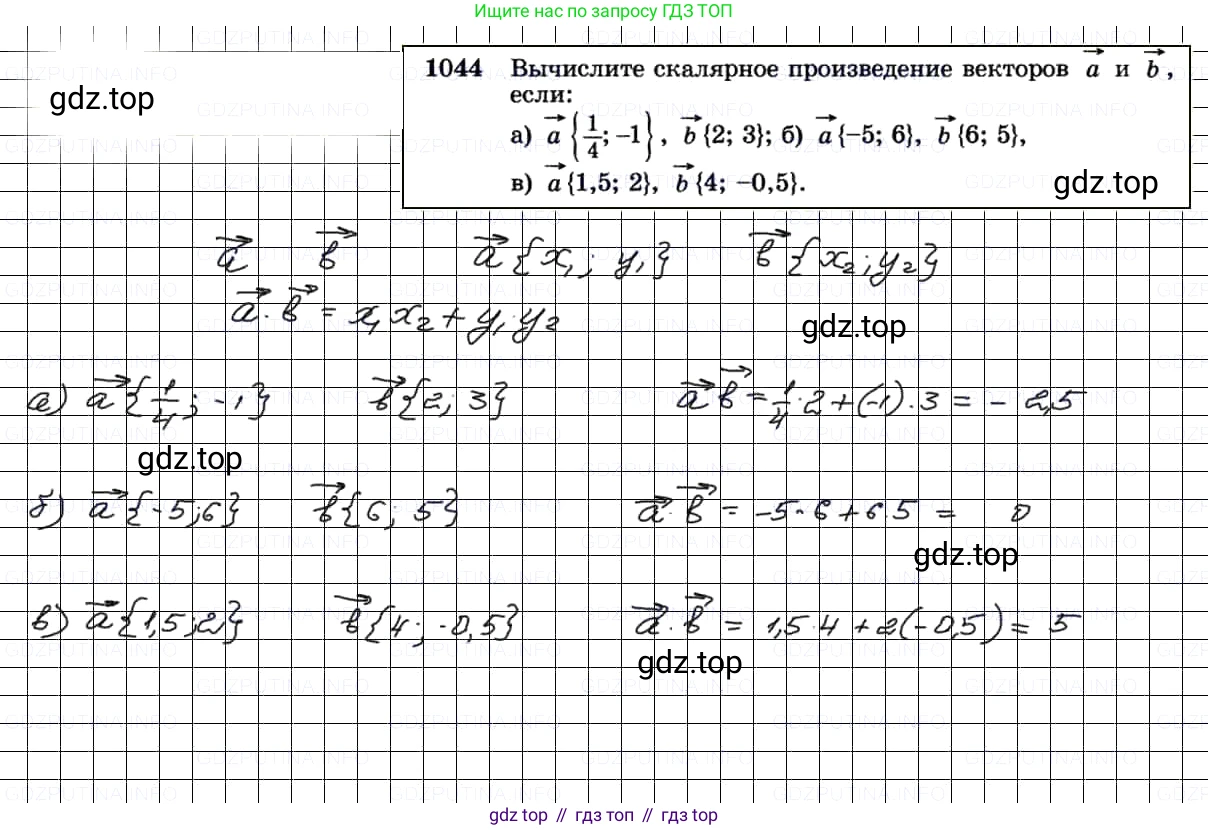 Ищите нас по запросу ГДЗ ТОП
1044 Вычислите скалярное произведение векторов a⃗ и b⃗,
если:
а) a⃗ {1/4; −1}, b⃗ {2; 3}; б) a⃗ {−5; 6}, b⃗ {6; 5},
в) a⃗ {1,5; 2}, b⃗ {4; −0,5}.
gdz.top
gdz.top
a⃗ b⃗ a⃗ {x₁; y₁} b⃗ {x₂; y₂}
a⃗ · b⃗ = x₁ x₂ + y₁ · y₂
gdz.top
а) a⃗ {1/4; -1} b⃗ {2; 3} a⃗ b⃗ = 1/4 · 2 + (-1) · 3 = - 2,5
gdz.top
б) a⃗ {-5; 6} b⃗ {6; 5} a⃗ b⃗ = -5 · 6 + 6 · 5 = 0
gdz.top
в) a⃗ {1,5; 2} b⃗ {4; -0,5} a⃗ · b⃗ = 1,5 · 4 + 2(-0,5) = 5
gdz.top
gdz top // гдз топ // gdz top
GDZPUTINA.INFO